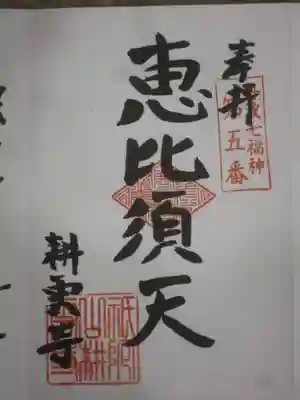 奉拝
丹波七福神
第五番
恵比須天
耕雲寺